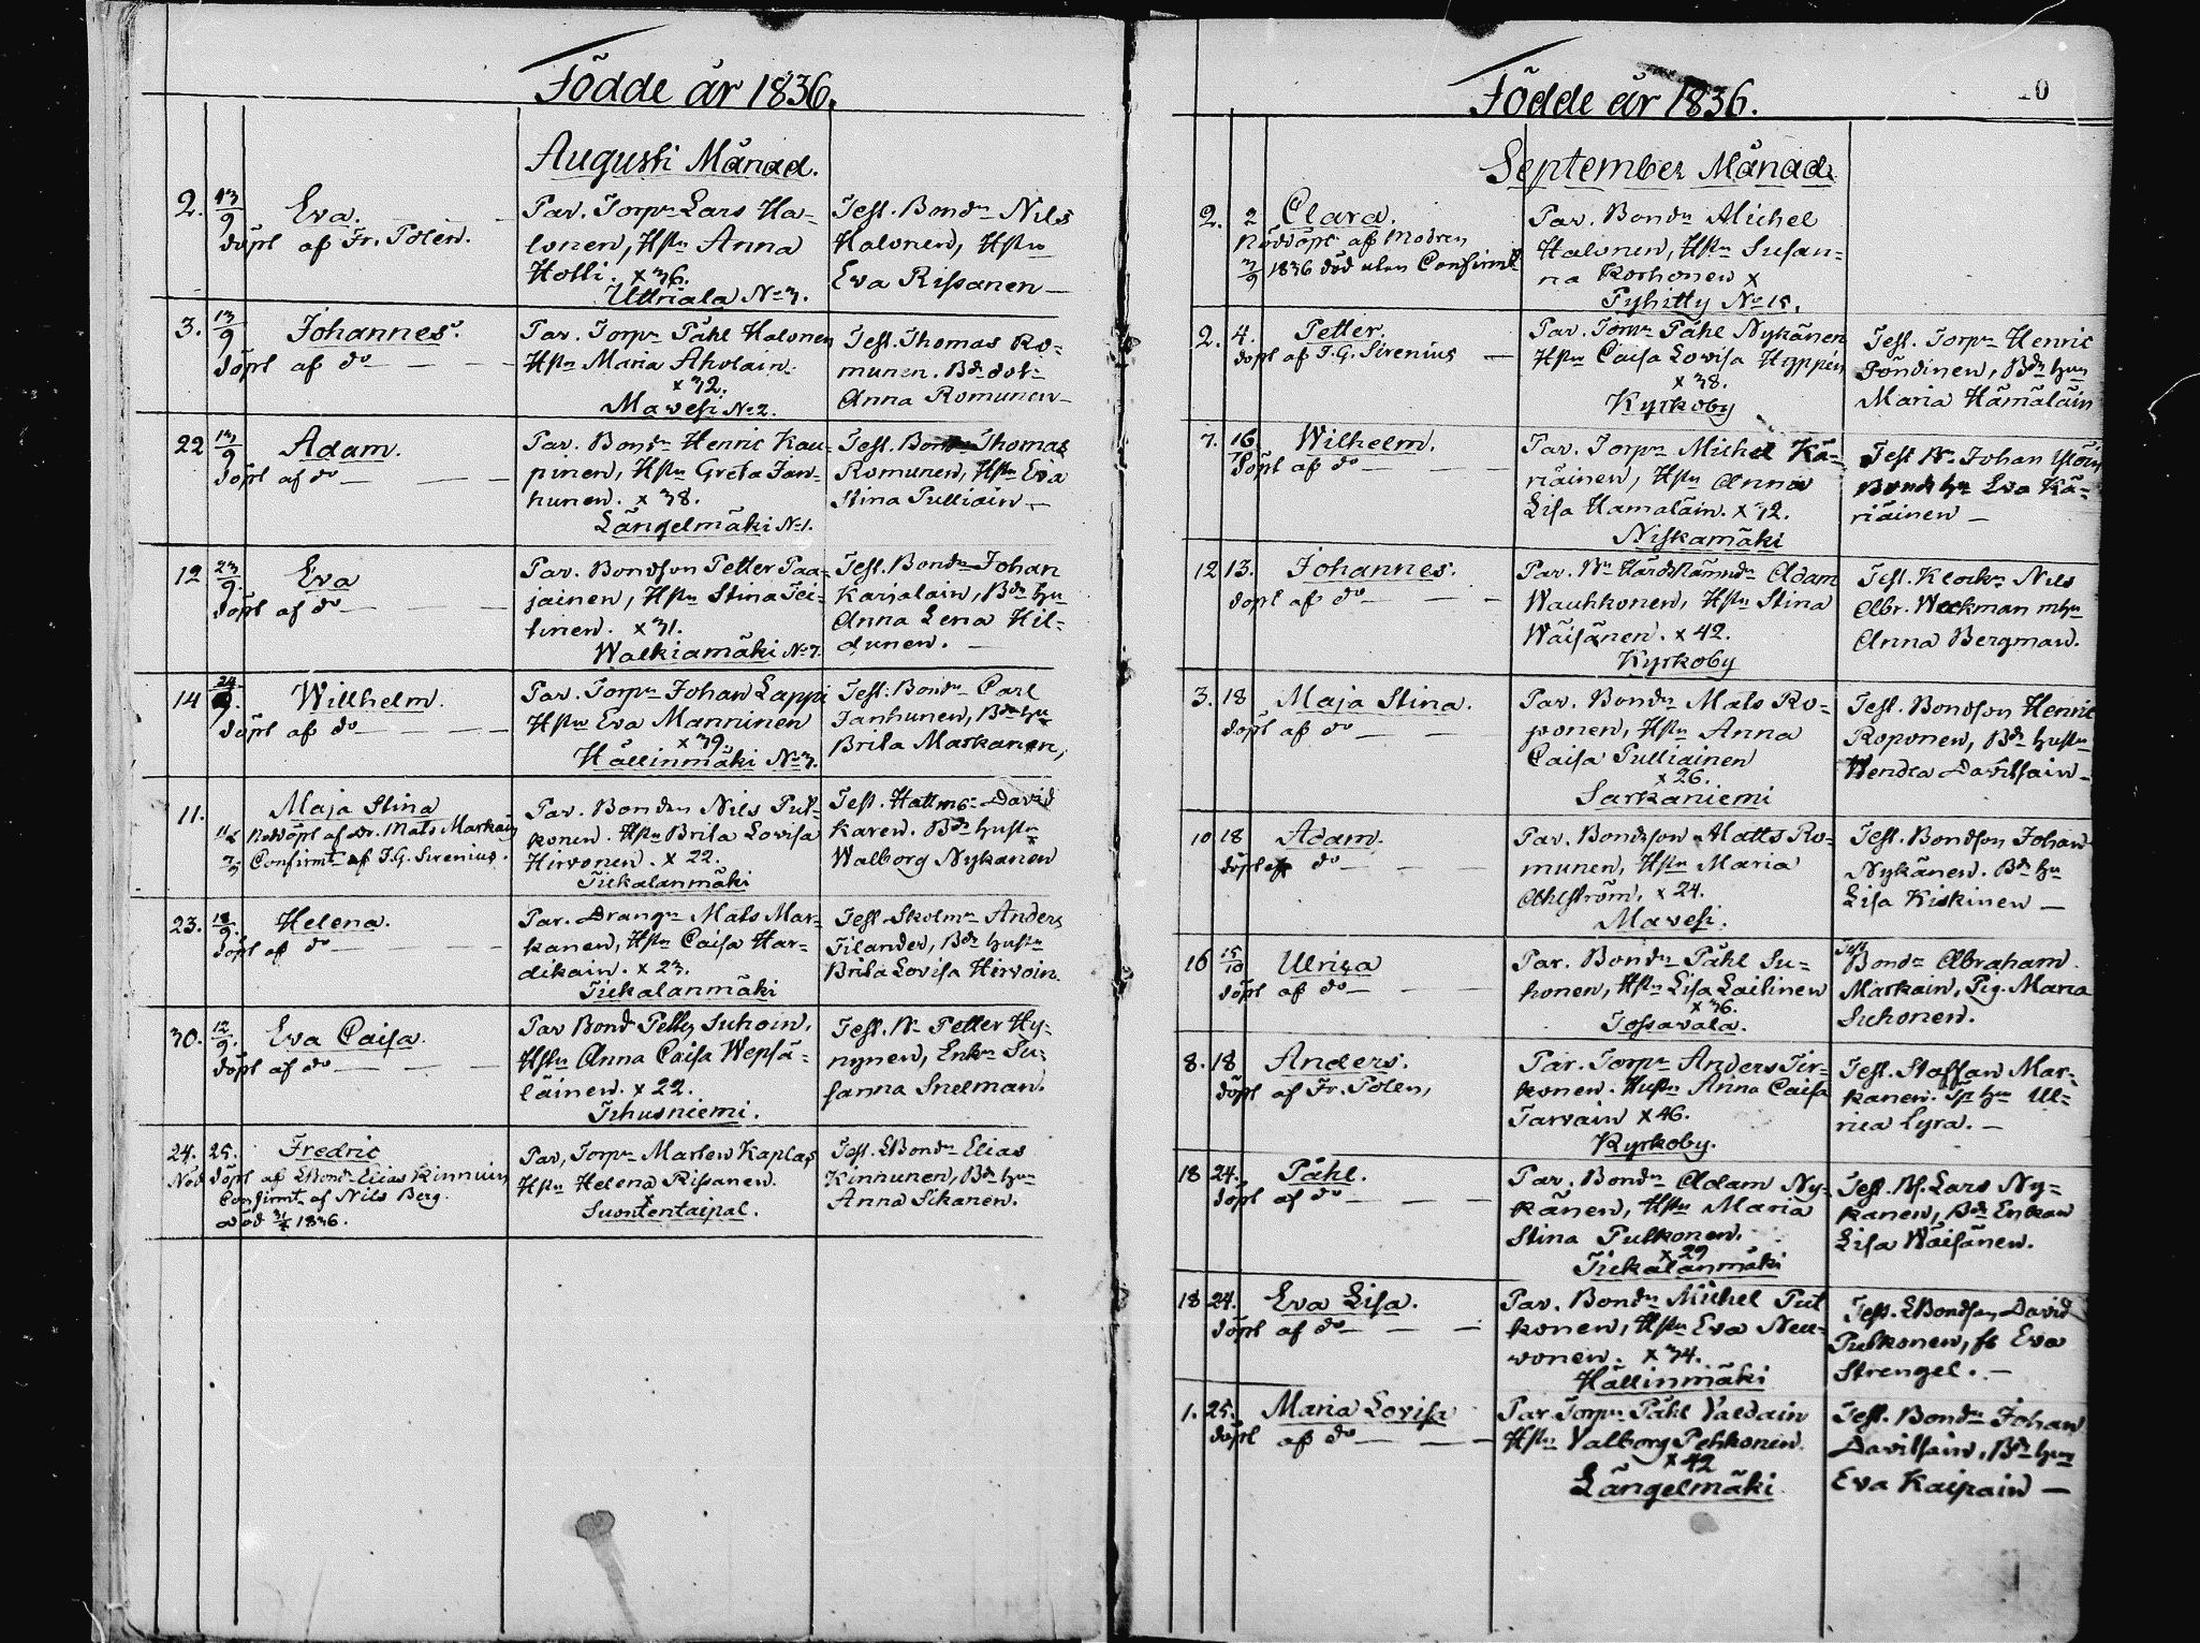 Födde år 1836.
Augusti Månad.
2. 13/9 Eva.
döpt af Fr. Polen.
Par. Torpr Lars Ha=
lonen, Hstu Anna
Holli. x 36.
Uttriala No 3.
Test. Bondn Nils
Halonen, Hstu
Eva Rissanen —
3. 13/9 Johannes.
döpt af do — — —
Par. Torpr Påhl Halonen
Hstu Maria Aholain.
x 32.
Mavesi No 2.
Test. Thomas Ro=
munen. Bdr dotr
Anna Romunen —
22 13/9 Adam.
döpt af do — — —
Par. Bondn Henric Kau=
pinen, Hstu Greta Jan=
hunen. x 38.
Längelmäki No 1.
Test. Bondn Thomas
Romunen, Hstu Eva
Stina Pulliain —
12 23/9 Eva
döpt af do — — —
Par. Bondson Petter Paa=
jainen, Hstu Stina Tei=
tinen. x 31.
Walkiamäki No 7.
Test. Bondn Johan
Karjalain, Bdr hu
Anna Lena Hil=
dunen. —
14 24/9. Willhelm.
döpt af do — — —
Par. Torpr Johan Lappi
Hstu Eva Manninen
x 39.
Hällinmäki No 3.
Test. Bondn Carl
Janhunen, Bdr hu
Brita Markanen,
11. Maja Stina
11/8 Nöddöpt af Dr. Mats Markain
7/9 Confirmt af J.G. Sirenius.
Par. Bonden Nils Pul=
konen. Hstu Brita Lovisa
Hirvonen. x 22.
Tiekalanmäki
Test. Hattms David
Karen. Bdr hustu
Walborg Nykänen
23. 18/9. Helena.
döpt af do — — —
Par. Drangn Mats Mar=
kanen, Hstu Caisa Har=
dikain. x 23.
Tiekalanmäki
Test Skolmr Anders
Tilander, Bdr hustu
Brita Lovisa Hirvoin.
30. 12/9. Eva Caisa.
döpt af do — — —
Par Bond Petter Suhoin,
Hstu Anna Caisa Wepsä=
läinen. x 22.
Ihusniemi.
Test. Nn Petter Hy=
nynen, Enkn Su=
sanna Snelman.
24. 25. Fredric
Nöd döpt af LBondn Elias Kinnuin
Confirmt af Nils Berg.
död 31/8 1836.
Par, Torpr Marten Kaplas
Hstu Helena Rissanen.
x
Suontentaipal.
Test. LBondn Elias
Kinnunen, Bdr hu
Anna Sikanen.
Födde år 1836. 0
September Månad.
2. 2 Clara.
Nöddöpt af Modren
3/9 1836 död utan Confirmt
Par. Bondn Michel
Halonen, Hstu Susan=
na Korhonen x
Pyhitty No 15.
2. 4. Petter.
döpt af J.G. Sirenius —
Par. Torpr Påhl Nykänen
Hstu Caisa Lovisa Hyppén
x 38.
Kyrkoby
Test. Torpr Henric
Pöndinen, Bdr hu
Maria Hämäläin
7. 16/10 Wilhelm.
döpt af do — — —
Par. Torpr Michel Kä=
riäinen, Hstu Anna
Lisa Hamaläin. x 32.
Niskamäki
Test Nn Johan
Bondr hu Eva Kä=
riäinen —
12 13. Johannes.
döpt af do — — —
Par. Nn Häradsnämndn Adam
Wauhkonen, Hstu Stina
Wäisänen. x 42.
Kyrkoby
Test. Klockn Nils
Abr. Weckman mhu
Anna Bergman.
3. 18 Maja Stina.
döpt af do — — —
Par. Bondn Mats Ro=
ponen, Hstu Anna
Caisa Pulliainen
x 26.
Sarkaniemi
Test. Bondson Henric
Roponen, Bdr hustu
Hendca Davitsain —
10 18 Adam.
döpt af do — — —
Par. Bondeson Matts Ro=
munen, Hstu Maria
Ahlström, x 24.
Mavesi.
Test. Bondson Johan
Nykänen. Bdr hu
Lisa Kiskinen —
16 15/10 Ulrica
döpt af do — — —
Par. Bondn Påhl Su=
honen, Hstu Lisa Laitinen
x 36.
Tossavala.
Test
Bondn Abraham
Markain, Pig. Maria
Suhonen.
8. 18 Anders.
döpt af Fr. Polen,
Par. Torpr Anders Tir=
konen. Hustu Anna Caisa
Tarvain x 46.
Kyrkoby.
Test. Staffan Mar=
kanen. Tp hu Ul=
rica Lyra. —
18 24. Påhl.
döpt af do — — —
Par. Bondn Adam Ny=
känen, Hstu Maria
Stina Pulkonen.
x 29
Tiekalanmäki
Test. Bs. Lars Ny=
kanen, Bdr Enkan
Lisa Wäisänen.
18 24. Eva Lisa.
döpt af do — — —
Par. Bondn Michel Pul
konen, Hstu Eva Neu=
vonen. x 34.
Hällinmäki
Test. LBondson David
Pulkonen, fr Eva
Strengel. —
1. 25. Maria Lovisa
döpt af do — — —
Par Torpr Påhl Valdain
Hstu Valborg Pehkonen.
x 42
Längelmäki
Test. Bondn Johan
Davitsain, Bdr hu
Eva Kaipain —